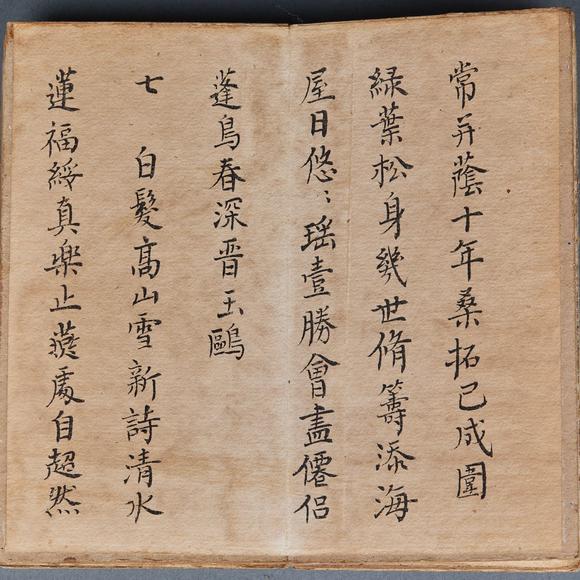 常并蔭十年桑拓已成圍
緑葉松身幾世脩籌添海
屋日悠〻瑶壹勝會盡僊侣
蓬島春深晋玉鷗
七 白髮高山雪新詩清水
蓮福綏真樂止燕處自超然